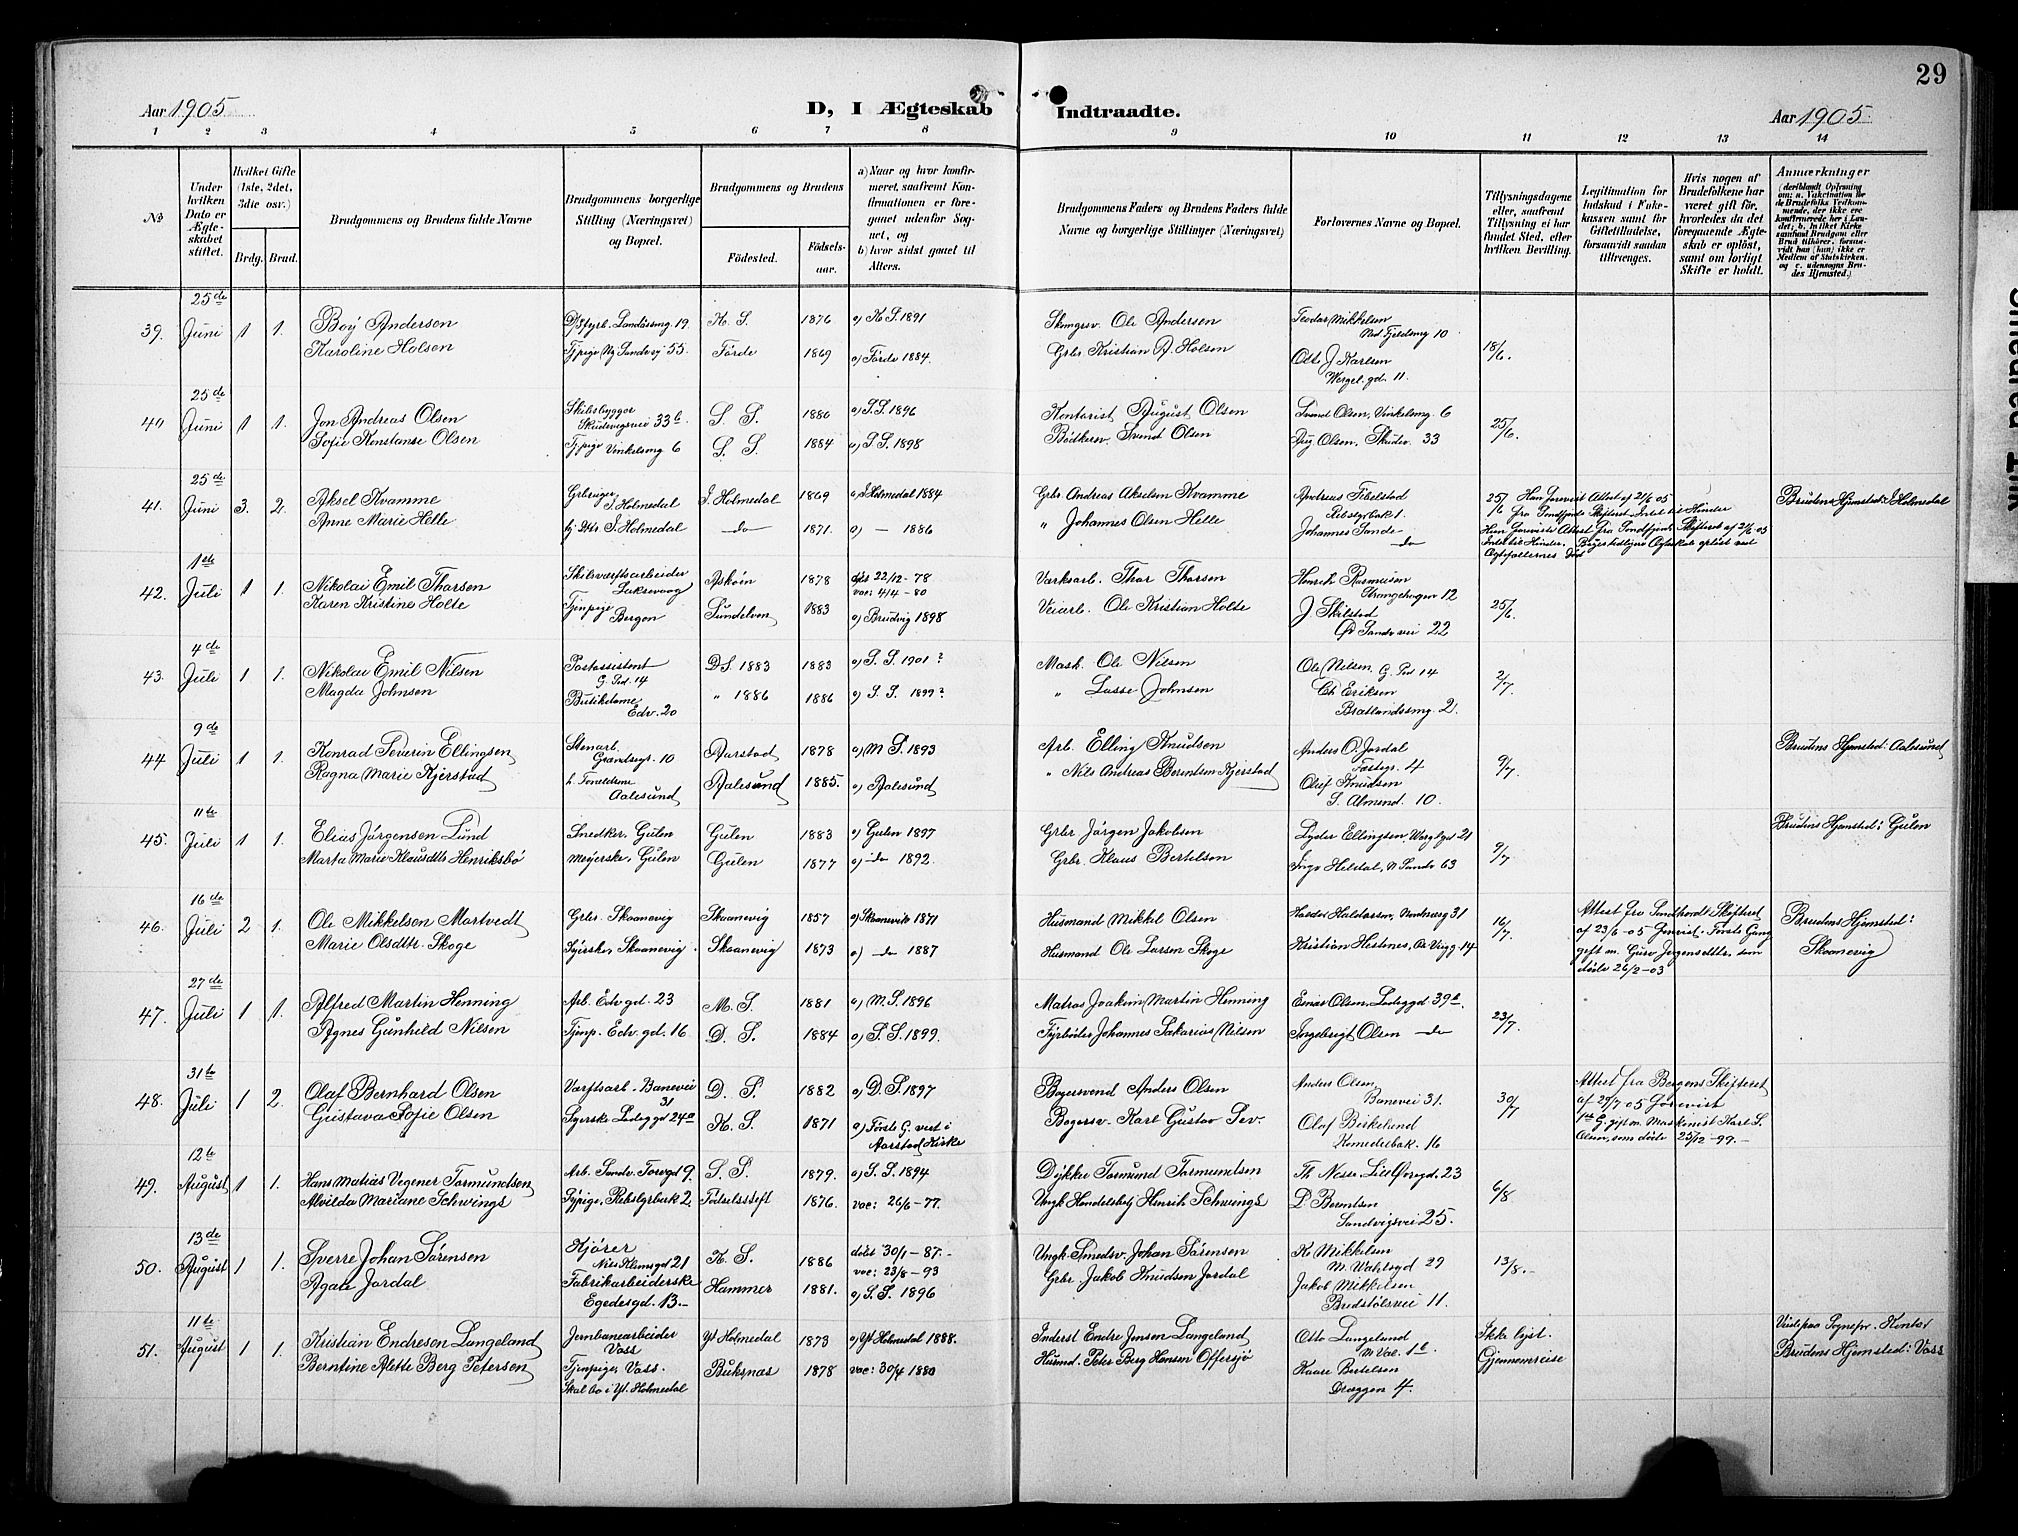 29
Aar 1905
D, I Ægteskab Indtraadte.
Aar 1905
1 2 3 4 5 6 7 8 9 10 11 12 13 14
No
Under hvilken Dato er Ægteskabet stiftet.
Hvilket Gifte (1ste, 2det, 3die osv.)
Brdg. Brud.
Brudgommens og Brudens fulde Navne
Brudgommens borgerlige Stilling (Næringsvei) og Bopæl.
Brudgommens og Brudens
Födested.
Födselsaar.
a) Naar og hvor konfirmeret, saafremt Konfirmationen er foregaaet udenfor Sognet, og
b) hvor sidst gaaet til Alters.
Brudgommens Faders og Brudens Faders fulde Navne og borgerlige Stillinger (Næringsvei)
Forlovernes Navne og Bopæl.
Tillysningsdagene eller, saafremt Tillysning ei har fundet Sted, efter hvilken Bevilling.
Legitimation for Indskud i Enkekassen samt for Giftetilladelse, forsaavidt saadan tiltrænges.
Hvis nogen af Brudefolkene har været gift før, hvorledes da det foregaaende Ægteskab er oplöst, samt om lovligt Skifte er holdt.
Anmærkninger
39. 25de Juni 1 1.
Boy Andersen
Karoline Holsen
K. S. 1876 a) K S. 1891
Förde 1869 a) Förde 1884.
Ole Andersen
Grbr Kristian A. Holsen
Teodor Mikkelsen
Otto J Karlsen
Wergel. gd. 11.
18/6.
40 25de Juni 1 1.
Jon Andreas Olsen
Sofie Konstanse Olsen
Skibsbygger
Skudevigsvei 33 b
Tjpige Vinkelsmg 6
S. S. 1880 a) S. S. 1896
S. S. 1884 a) S S. 1898
Kontorist August Olsen
Bödkersv. Svend Olsen
Svend Olsen, Vinkelsmg 6
Aug Olsen, Skudev. 33
25/6.
41. 25de Juni 3. 2.
Aksel Kvamme
Anne Marie Helle
I. Holmedal 1869 a) I Holmedal 1884
do 1871. a) — 1886
Grbr. Andreas Akselsen Kvamme
" Johannes Olsen Helle
Johannes Sande
do
25/6
Brudens Hjemsted: I Holmedal
42. 1ste Juli 1 1.
Nikolai Emil Thorsen
Karen Kristine Holte
Skibsværftsarbeider
Laksevaag
Tjenpige
Bergen
Askøin 1878 döbt 22/12 - 78
vac: 4/4 - 80
1883 a) Bruvig 1898
Thor Thorsen
Veiarb. Ole Kristian Holte
Henrik Rasmussen
Strangehagen 12
J. Skilstad
Ø Sandvvei 22
25/6.
43. 4de Juli 1 1.
Nikolai Emil Nilsen
Magda Johnsen
Postassistent
Butikdame
Edv. 20
D S. 1883 1883 a) S. S. 1901?
" 1886 1886 a) S S. 1899?
Mask. Ole Nilsen
" Lasse Johnsen
Ole Nilsen,
Ch Eriksen
2/7.
44 9de Juli 1 1.
Konrad Severin Ellingsen
Ragna Marie Kjerstad
Stenarb.
Aalesund
Aarstad 1878 a) M S. 1893
Aalesund 1885. a) Aalesund
Arb. Elling Knudsen
" Nils Andreas Berntsen Kjerstad
Anders O. Jordal
Olaf Knudsen
S. Almend. 10.
9/7.
Brudens Hjemsted: Aalesund
45. 11te Juli 1 1.
Elias Jörgensen Lund
Marta Marie Klausdtr Henriksbø
Snedker, Gulen
Meierske, Gulen
Gulen 1883 a) Gulen 1897
Gulen 1877 a) do 1892.
Grbr Jörgen Jakobsen
Grbr. Klaus Bertelsen
Lyder Ellingsen, Werglgd 21
Inga Heldal, N Sandv 63
9/7
Brudens Hjemsted: Gulen
46. 16de Juli 2 1.
Ole Mikkelsen Martvedt
Marie Olsdtr. Skoge
Grbr. Skaanevig
Syerske, Skaanevig
Skaanevig 1857 a) Skaanevik 1871
Skaanevig 1873 a) do 1887
Husmand Mikkel Olsen
Husmand Ole Larsen Skoge
Haldor Haldorsen, 31
Kristian Hestnes, 14
16/7.
Attest fra Söndhordl Skifteret
af 23/6 - 05 forevist. Förste Gang
gift m. Guro Jörgensdtr, som
döde 26/2 - 03
Brudens Hjemsted: Skaanevig
47. 27de Juli 1 1.
Alfred Martin Henning
Agnes Gunhild Nilsen
Arb. Edv gd. 23
Tjenp. Edv. gd. 16
M. S. 1881 a) M S. 1896
D. S. 1884 a) S. S. 1899.
Matros Joakim Martin Henning
Fyrböder Johannes Sakarias Nilsen
Einar Olsen, Ladeggd 39 a.
Ingebrigt Olsen — do
23/7.
48. 31te Juli 1 2.
Olaf Bernhard Olsen
Gustava Sofie Olsen
Værftsarb. Banevei 31
Syerske Ladeggd 24 a
D. S. 1882 a) D. S. 1897
K. S. 1871 a) Förste G. viet i
Aarstad Kirke
Bagersvend Anders Olsen
Bagersv. Karl Gustav Sev.
Anders Olsen,
Banevei 31.
Olaf Birkeland
Komediebak. 16
30/7
Attest fra Bergens Skifteret
af 29/7 05 forevist
1ste G. gift m. Maskinist Karl S.
Olsen, som döde 25/12 - 99. -
49. 12te August 1 1.
Hans Matias Vegener Tormundsen
Alvilda Mariane Schwings
Arb. Sandv. Torvgd 9.
Sypige, Rebslgerbak 2.
S. S. 1879. a) S. S. 1894
Födselsstift 1876. vac: 26/6 - 77.
Dykker Tormund Tormundsen
Ungk Handelsbetj Henrik Schwings
D. Berentsen
Sandvigsvei 25.
6/8
50. 13de August 1 1.
Sverre Johan Sörensen
Agate Jordal
Kjörer
Nils Klimsgd 21
Fabrikarbeiderske
Egedesgd. 13. -
K. S. 1886 döbt 30/1 - 87. -
vac: 23/8 - 93
Hammer 1881. a) S. S. 1896
Ungk. Smedsv. Johan Sörensen
Grbr. Jakob Knudsen Jordal
K. Mikkelsen
M. Wahlsgd 29
Jakob Mikkelsen
Bredstølsvei 11.
13/8. -
51. 11te August 1 1.
Kristian Endresen Langeland
Berntine Aette Berg Petersen
Jernbanearbeider
Voss
Tjenpige, Voss.
Skal bo i Yt. Holmedal
Yt Holmedal 1873 a) Yt Holmedal 1888.
Buksnæs 1878 vac: 30/4 1880
Inderst Endre Jensen Langeland
Husmd. Peter Berg Hansen Offersjø
Otto Langeland
Kaare Bertelsen
Dræggen 4.
Ikke lyst.
Gjennemreise
Viet paa Sognepr. Kontor
Brudens Hjemsted: Voss